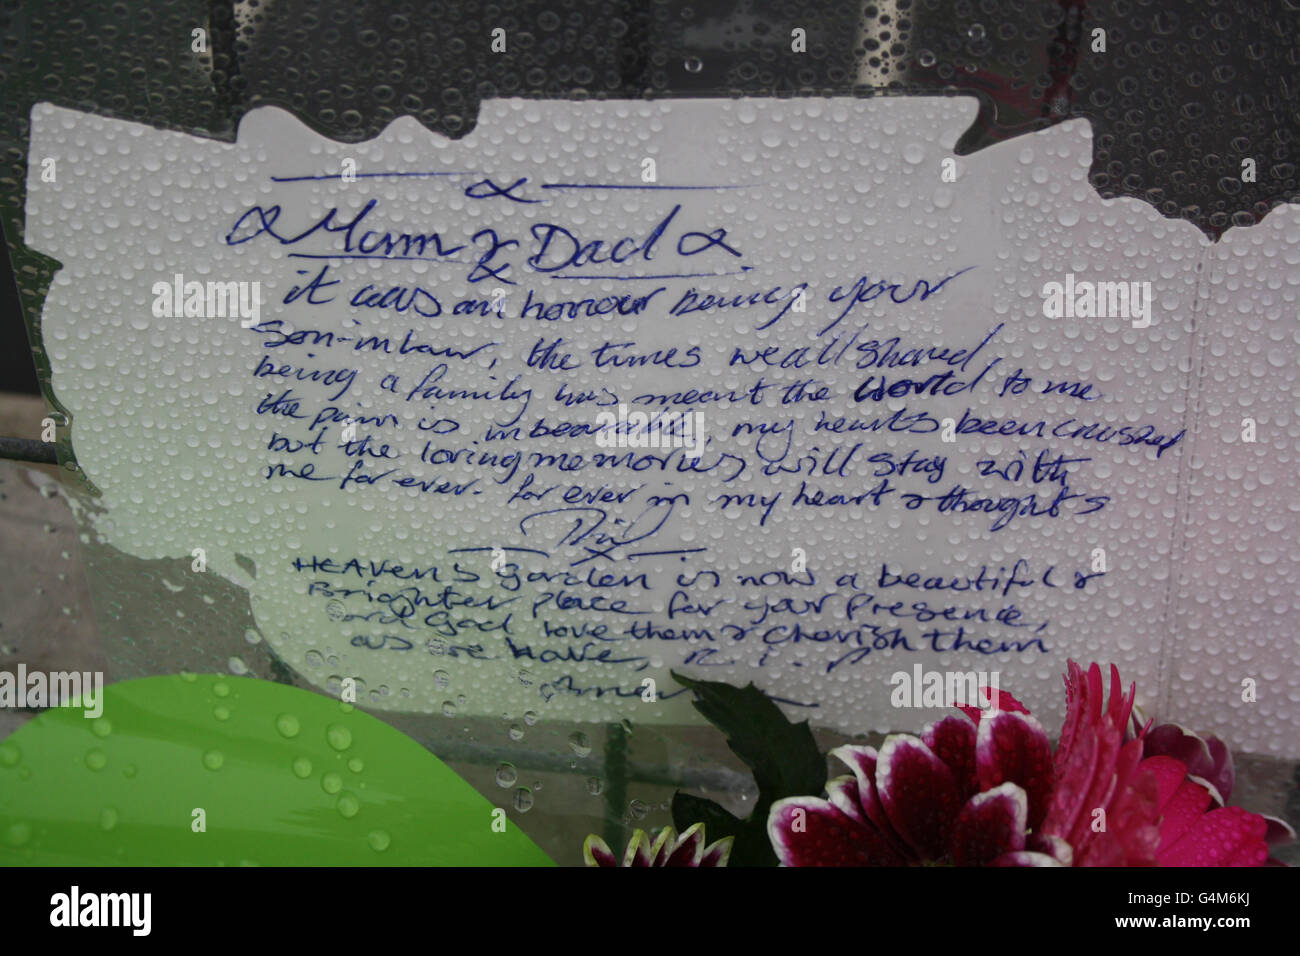 Mam & Dad
it was an honour being your
son-in law, the times we all shared,
being a family has meant the world to me
the pain is unbearable, my hearts been crushed
but the loving memories will stay with
me for ever. for ever in my heart & thoughts
HEAVEN'S garden is now a beautiful &
Brighter place for your presence,
and God love them & cherish them
as we have, R.I.P
alamy
Image ID: G4M6KJ
www.alamy.com